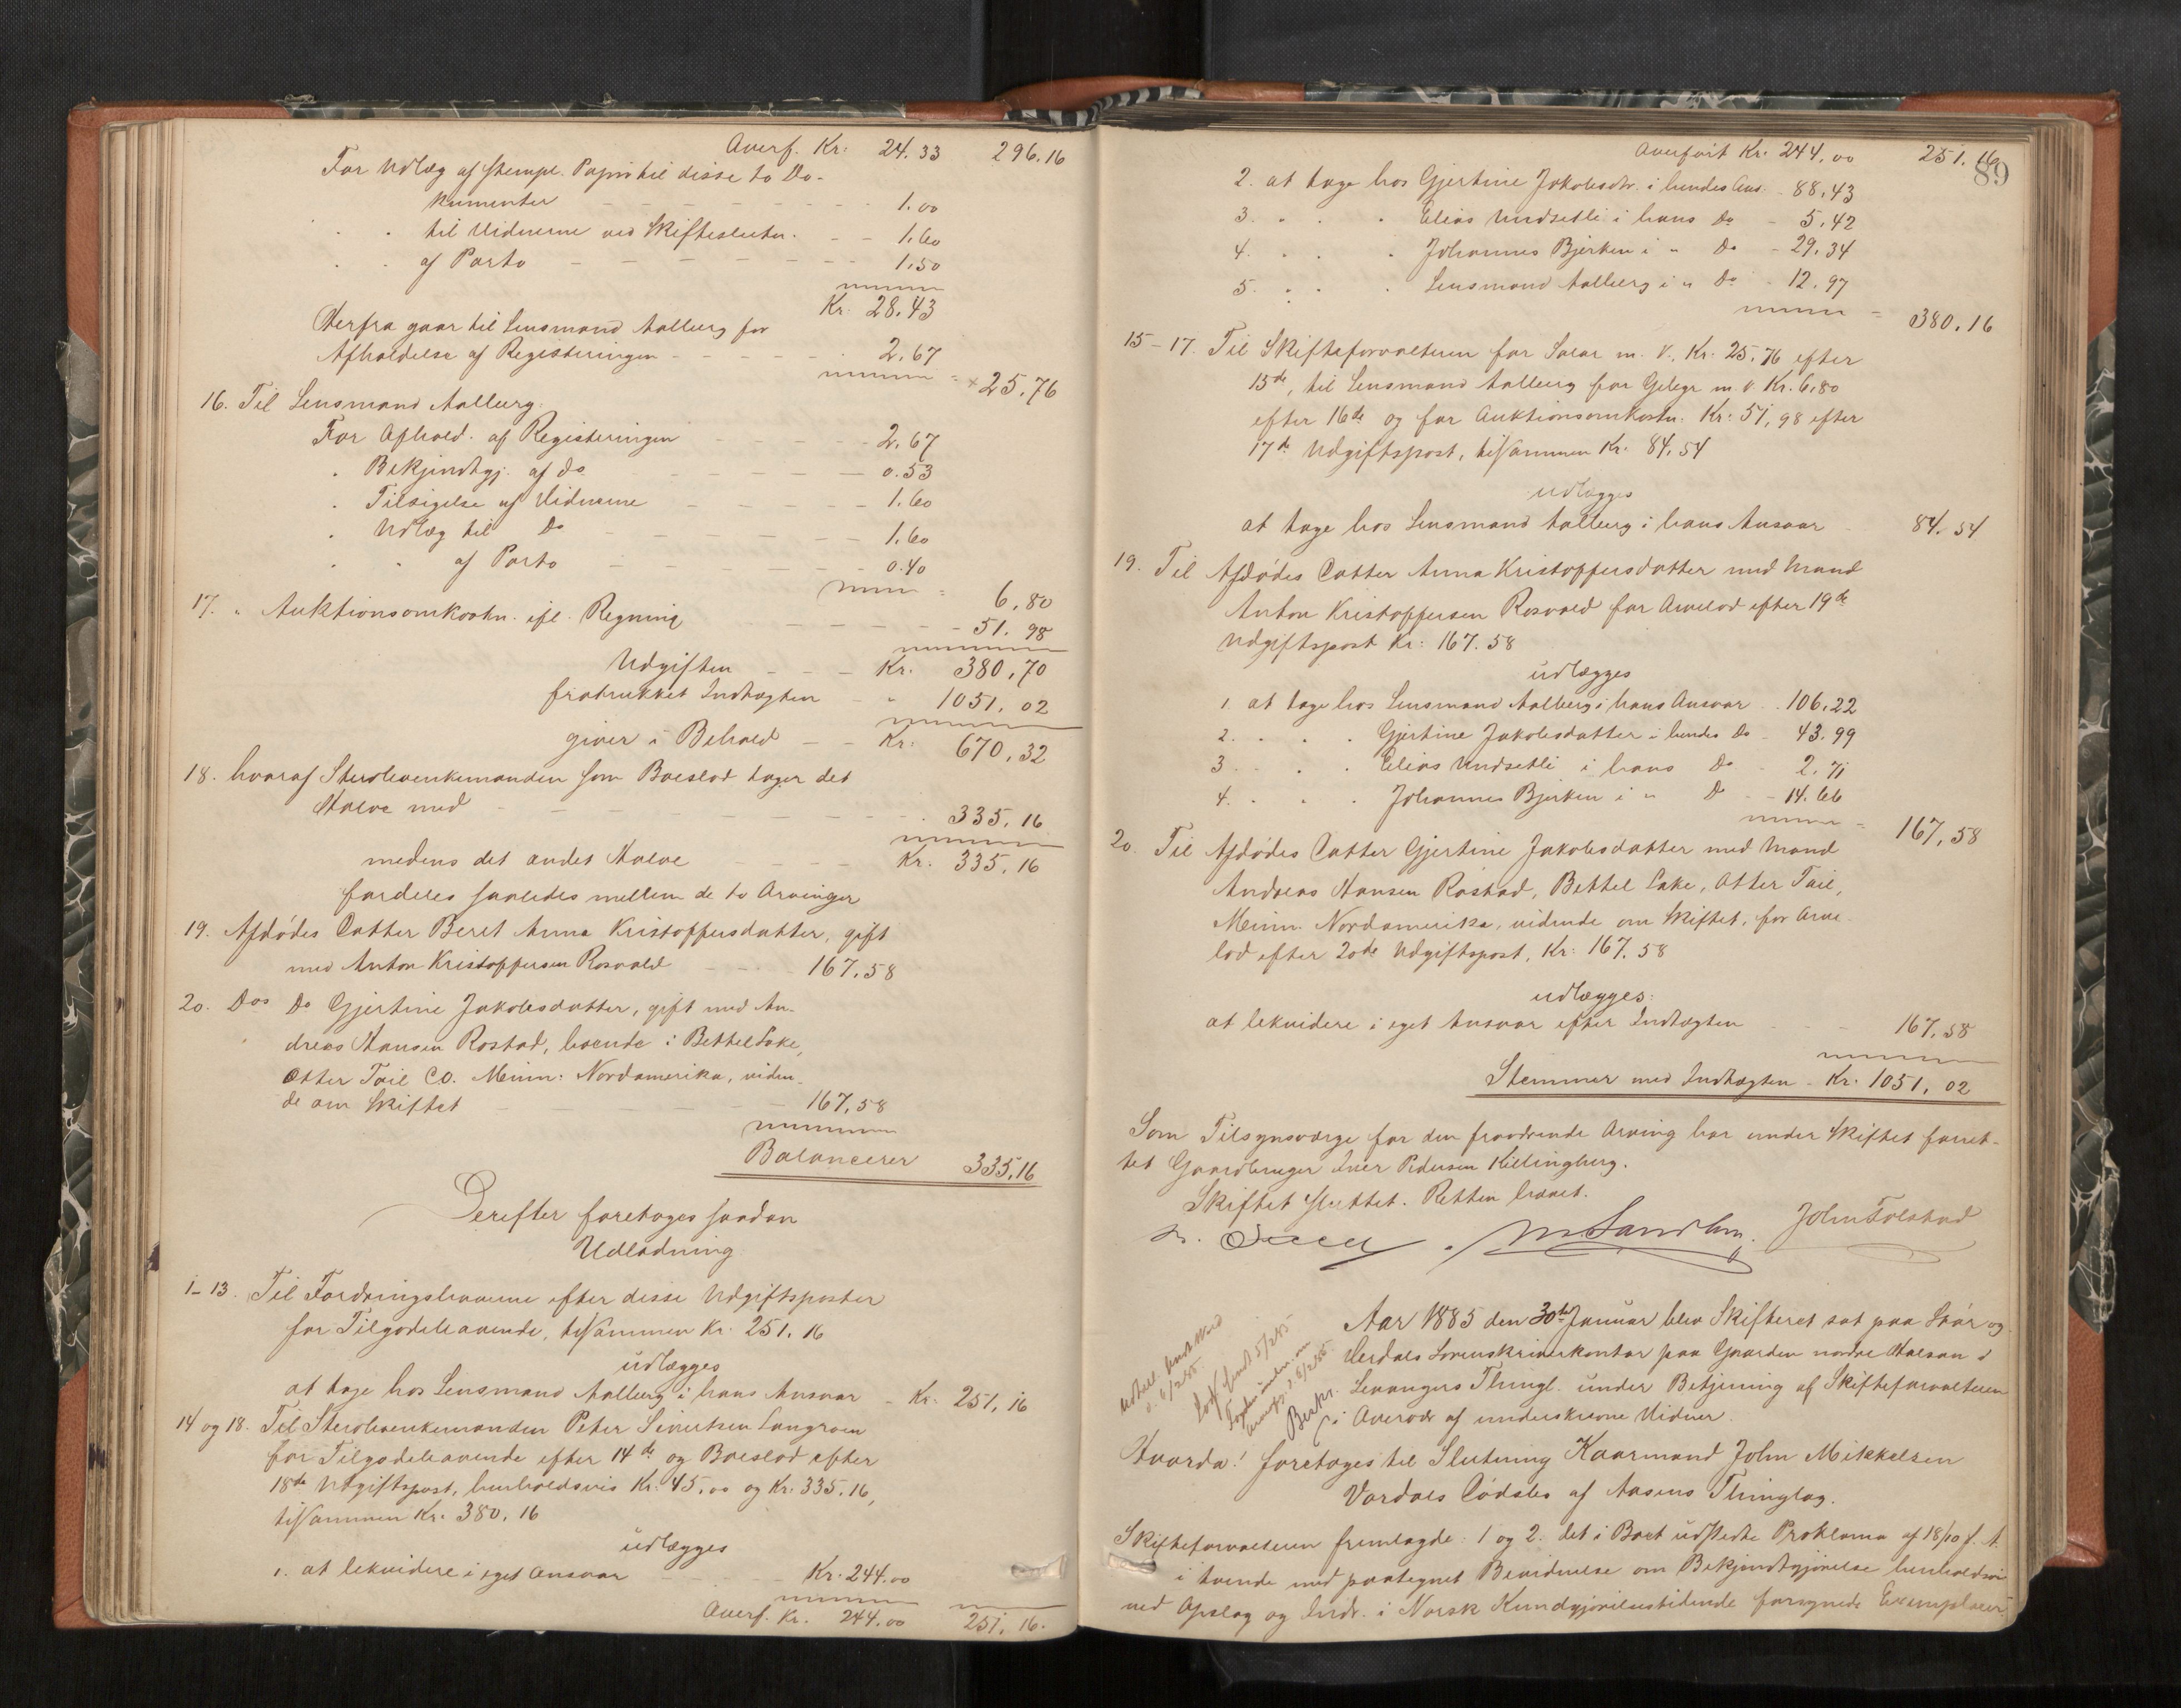 Overf. Kr: 24.33 296.16
For Udlæg af Stempl. Papir til disse to Do-
kumenter 1.00
" " til Vidnerne ved Skifteslutn. 1.60
" " af Porto 1.50
Kr. 28.43
Herfra gaar til Lensmand Aalberg for
Afholdelse af Registeringen 2.67 = 25.76
16. Til Lensmand Aalberg:
For Afhold. af Registeringen 2.67
" Bekjendtgj. af Do 0.53
" Tilsigelse af Vidnerne 1.60
" Udlæg til Do 1.60
" " af Porto 0.40
= 6.80
17. " Auktionsomkostn. ifl. Regning 51.98
Udgiften Kr. 380,70
fratrukket Indtægten " 1051.02
giver i Behold Kr: 670,32
18. hvoraf Sterbeenkemanden som Boeslod tager det
Halve med 335.16
medens det andet Halve Kr. 335.16
fordeles saaledes mellem de to Arvinger
19. Afdødes Datter Beret Anna Kristoffersdatter, gift
med Anton Kristoffersen Rosvold 167.58
20. Dos Do Gjertine Jakobsdatter, gift med An-
dreas Hansen Rostad, boende i Bettel Lake,
Otter Tail Co. Minn: Nordamerika, viden-
de om Skiftet 167,58
Balancerer 335,16
Derefter foretages saadan
Udlodning
1-13. Til Fordringshaverne efter disse Udgiftsposter
for Tilgodehavende, tilsammen Kr. 251.16
udlægges
at tage hos Lensmand Aalberg i hans Ansvar Kr. 251,16
14 og 18. Til Sterbeenkemanden Peter Sivertsen
for Tilgodehavende efter 14de og Boeslod efter
18de Udgiftspost, henholdsvis Kr. 45,00 og Kr: 335.16,
tilsammen Kr. 380.16
udlægges
1. at lekvidere i eget Ansvar Kr. 244.00
Overf. Kr. 244.00 251.16.
89
Overført Kr: 244,00 251.16
2. at tage hos Gjertine Jakobsdtr. i hendes Ans. 88,43
3. " " " Elias Undsetli i hans Do 5,42
4. " " " Johannes Bjerken i " Do 29.34
5. " " " Lensmand Aalberg i " Do 12.97
= 380.16
15-17. Til Skifteforvalteren for Salær m. V., Kr. 25,76 efter
15de, til Lensmand Aalberg for Gebyr m. V. Kr. 6,80
efter 16de og for Auktionsomkostn. Kr: 51,98 efter
17de Udgiftspost, tilsammen Kr. 84,54
udlægges
at tage hos Lensmand Aalberg i hans Ansvar 84.54
19. Til Afdødes Datter Anna Kristoffersdatter med Mand
Anton Kristoffersen Rosvold for Arvelod efter 19de
Udgiftspost Kr: 167.58
udlægges
1. at tage hos Lensmand Aalberg i hans Ansvar 106,22
2. " " " Gjertine Jakobsdatter i hendes Do 43.99
3. " " " Elias Undsetli i hans Do 2.71
4. " " " Johannes Bjerken i " Do 14.66
= 167,58
20. Til Afdødes Datter Gjertine Jakobsdatter med Mand
Andreas Hansen Rostad, Bettel Lake, Otter Tail,
Minn. Nordamerika, vidende om Skiftet, for Arve-
lod efter 20de Udgiftspost, Kr: 167.58
udlægges:
at lekvidere i eget Ansvar efter Indtægten 167,58
Stemmer med Indtægten Kr. 1051,02
Som Tilsynsværge for den fraværende Arving har under Skiftet forret-
tet Gaardbruger Iver Pedersen Killingberg.
Skiftet sluttet. Retten hævet.
John Tolstad
Aar 1885 den 30te Januar blev Skifteret sat paa Stør og
Verdals Sorenskriverkontor paa Gaarden nordre Halsan i
Levangers Thingl. under Betjening af Skifteforvalteren
i Overvær af underskrevne Vidner.
Hvorda! foretoges til Slutning Kaarmand John Mikkelsen
Vordals Dødsbo af Aasens Thinglag.
Skifteforvalteren fremlagde: 1 og 2. det i Boet udstedte Proklama af 18/10 f. A.
i tvende med paategnet Bevidnelse om Bekjendtgjørelse henholdsvis
ved Opslag og Indr. i Norsk Kundgjørelsestidende forsynede Exemplarer,